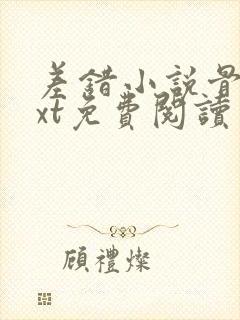 差錯小說
xt免費閱讀
顧禮燦